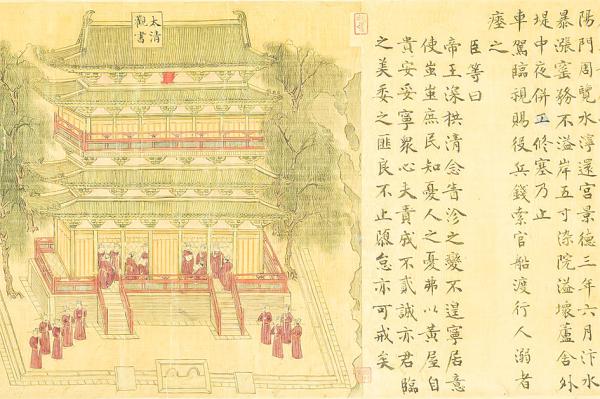 陽門周覽水濘還宮景德三年六月汴水
暴漲窰務不溢岸五寸染院溢壞蘆舍外
堤中夜併工修塞乃止
車駕臨視賜役兵錢索官船渡行人溺者
瘞之
臣等曰
帝王深拱清念眚沴之變不遑寧居意
使蚩蚩庶民知憂人之憂弗以黃屋自
貴安妥寧衆心夫責成不貳誠亦君臨
之美委之匪良不止隳怠亦可戒矣
太清
觀書